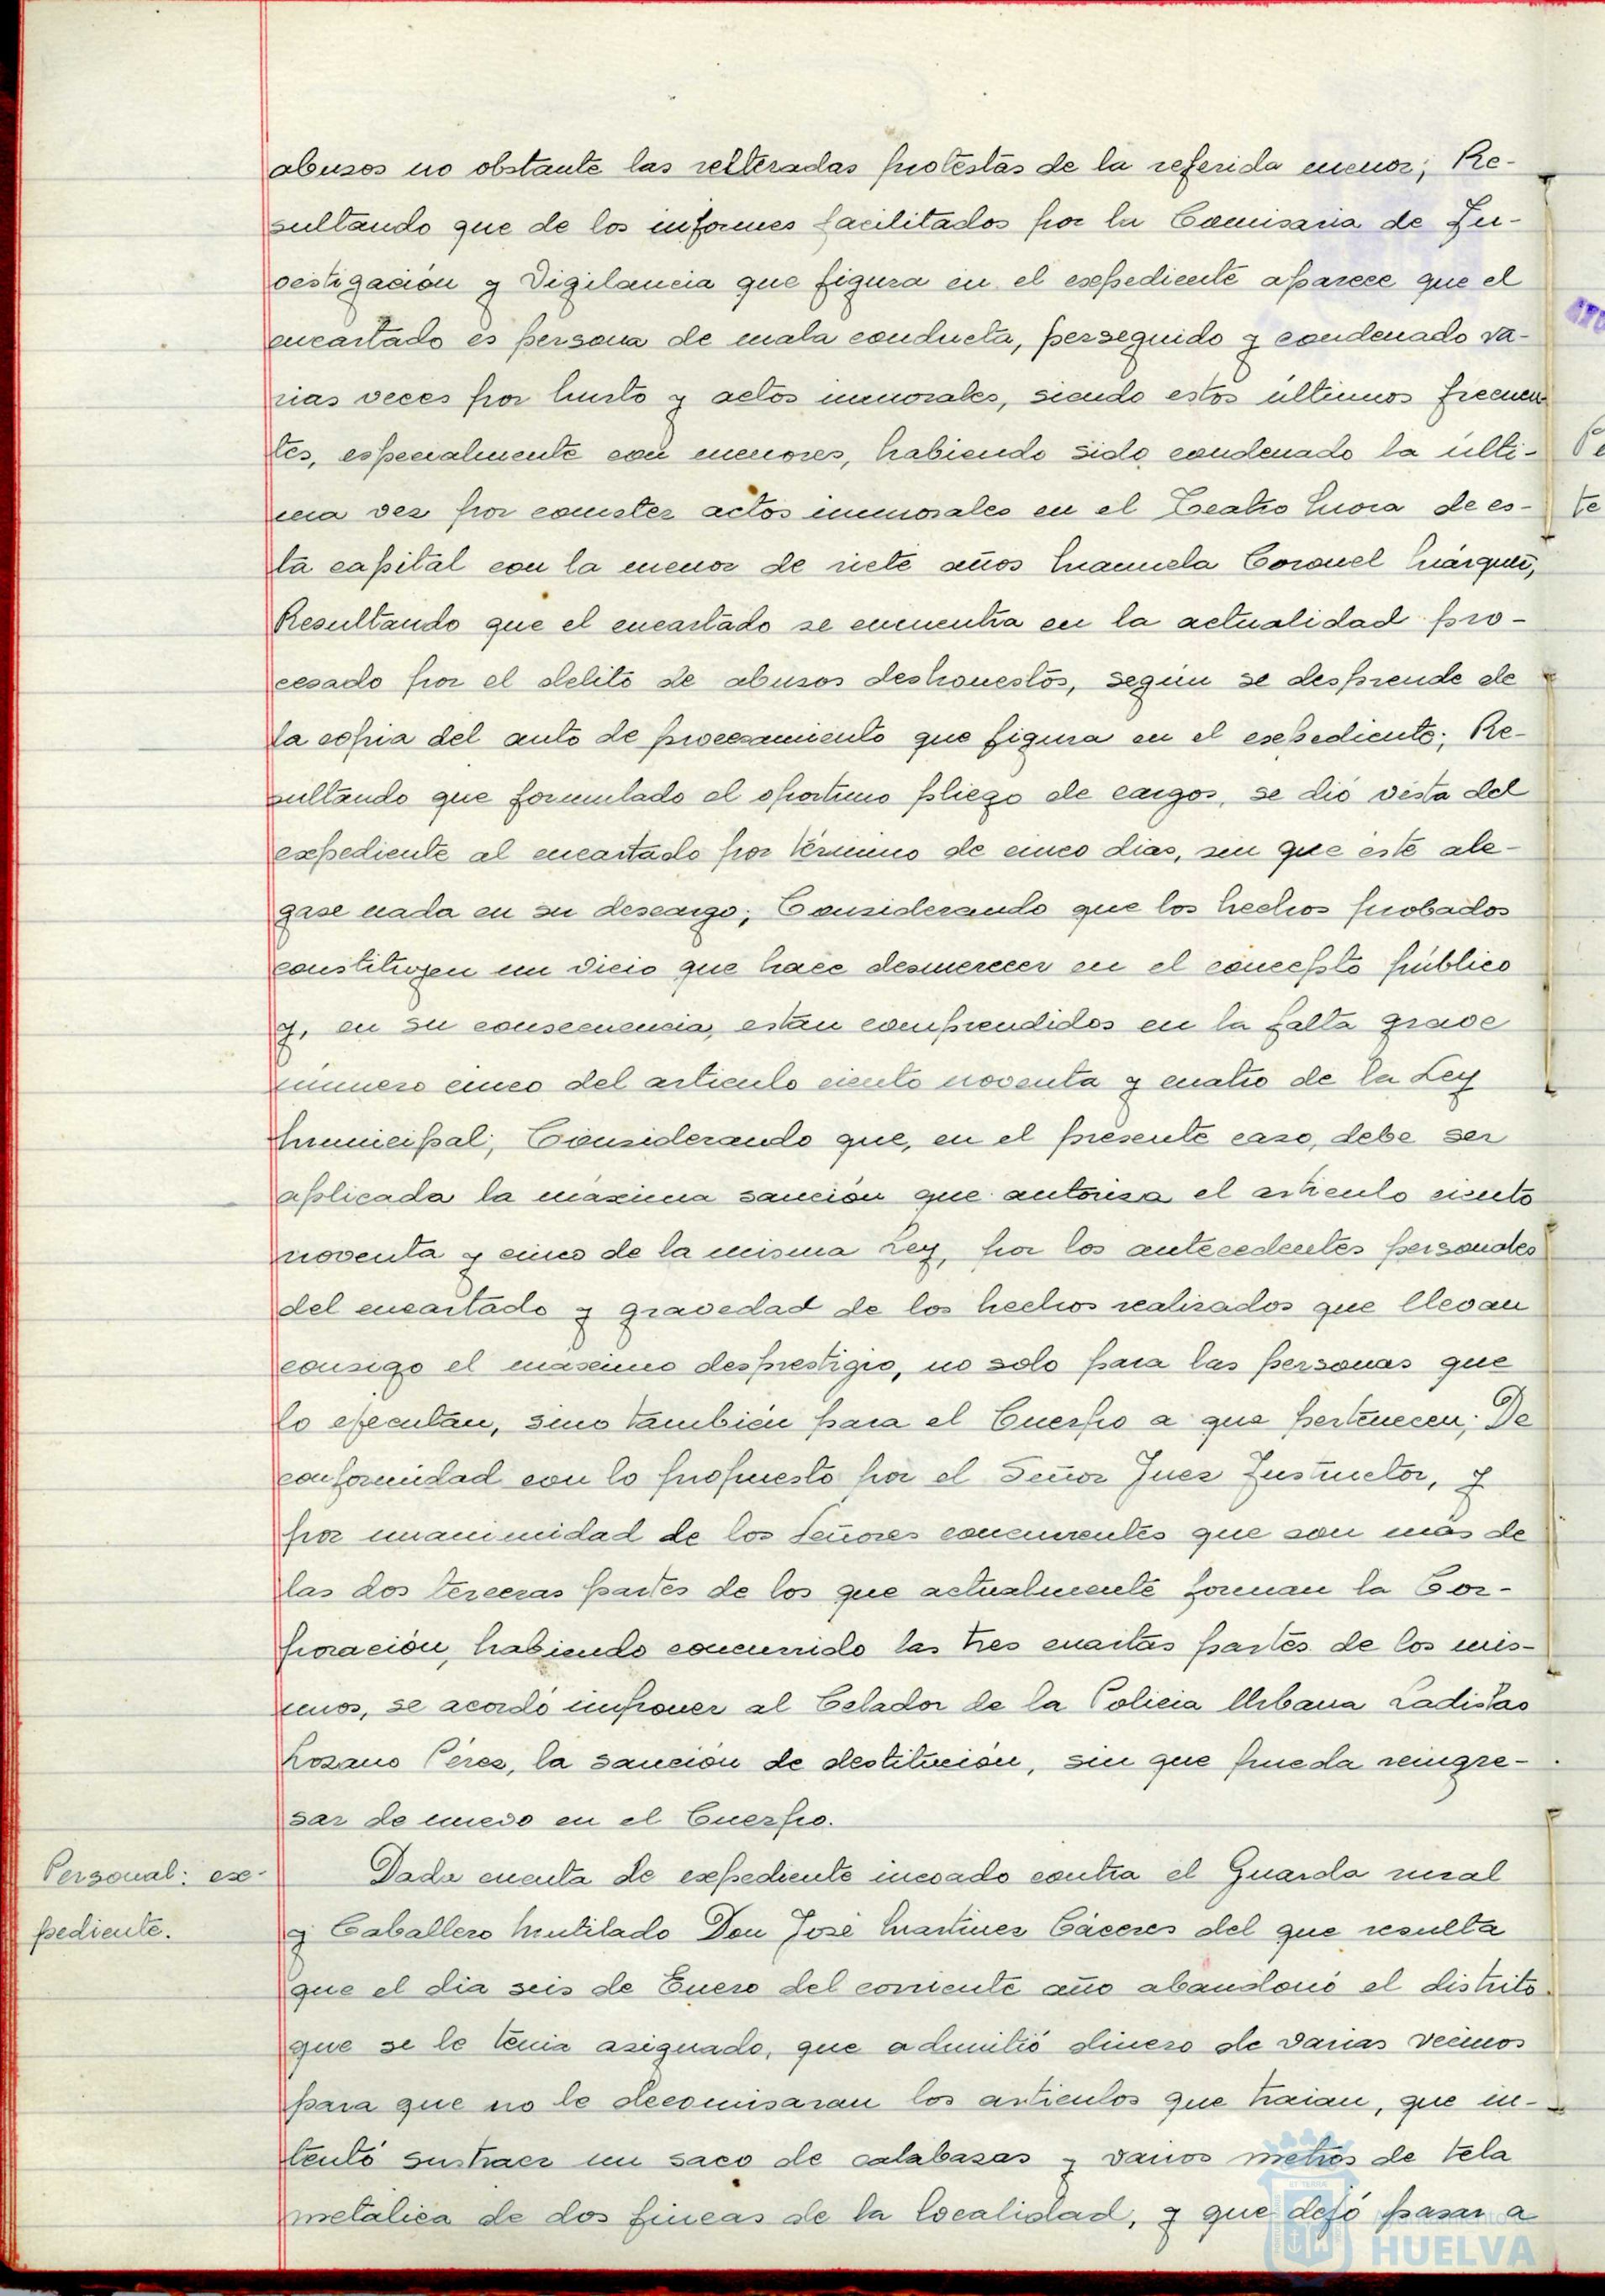 abusos no obstante las reiteradas protestas de la referida menor; Re-
sultando que de los informes facilitados por la Comisaria de In-
vestigación y Vigilancia que figura en el expediente aparece que el
encartado es persona de mala conducta, perseguido y condenado va-
rias veces por hurto y actos inmorales, siendo estos últimos frecuen
tes, especialmente con menores, habiendo sido condenado la últi-
ma vez por cometer actos inmorales en el Teatro Mora de es-
ta capital con la menor de siete años Manuela Coronel Márquez;
Resultando que el encartado se encuentra en la actualidad pro-
cesado por el delito de abusos deshonestos, según se desprende de
la copia del auto de procesamiento que figura en el expediente; Re-
sultando que formulado el oportuno pliego de cargos, se dió vista del
expediente al encartado por término de cinco dias, sin que éste ale-
gase nada en su descargo; Considerando que los hechos probados
constituyen un vicio que hace desmerecer en el concepto público
y, en su consecuencia, estan comprendidos en la falta grave
número cinco del articulo ciento noventa y cuatro de la Ley
Municipal; Considerando que, en el presente caso, debe ser
aplicada la máxima sanción que autoriza el articulo ciento
noventa y cinco de la misma Ley, por los antecedentes personales
del encartado y gravedad de los hechos realizados que llevan
consigo el máximo desprestigio, no solo para las personas que
lo ejecutan, sino también para el Cuerpo a que pertenecen; De
conformidad con lo propuesto por el Señor Juez Instructor, y
por unanimidad de los Señores concurrentes que son más de
las dos terceras partes de los que actualmente forman la Cor-
poración, habiendo concurrido las tres cuartas partes de los mis-
mos, se acordó imponer al Celador de la Policia Urbana Ladislao
Lozano Pérez, la sanción de destitución, sin que pueda reingre-
sar de nuevo en el Cuerpo.
Personal: ex-
pediente.
Dada cuenta de expediente incoado contra el Guarda rural
y Caballero Mutilado Don José Martinez Cáceres del que resulta
que el dia seis de Enero del corriente año abandonó el distrito
que se le tenia asignado, que admitió dinero de varias vecinos
para que no le decomisaran los articulos que traian, que in-
tentó sustraer un saco de calabazas y varios metros de tela
metálica de dos fincas de la localidad, y que dejó pasar a
HUELVA